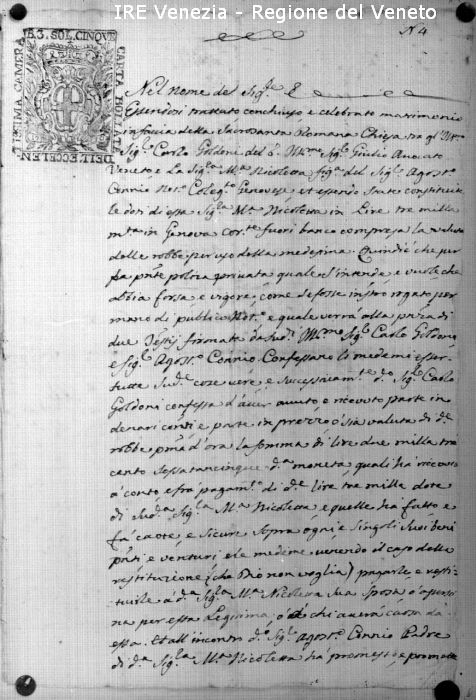 IRE Venezia - Regione del Veneto
N 4
B. 3. SOL. CINQVE
CARTA BOLLATA
DELL ECCELEN
TISSIMA CAMERA
Nel nome del Sig.re
Essendosi trattato conchiuso, e celebrato matrimonio
in faccia della Sacrosanta Romana Chiesa tra gl'
Sig.r Carlo Goldoni del q. Sig.r Giulio Avocato
Veneto, e la Sig.ra M.a Nicoletta figlia del Sig.r Agost.o
Connio Not.o Coleg.to Genovese, et essendo state constituite
le doti di essa Sig.ra M.a Nicoletta in Lire tre milla
m.ta in Genova cor.te fuori banco compresa la valuta
delle robbe per uso della medesima. Quindi è che per
la p̄nte poliza privata quale s'intenda, e vuole che
abbia forza e vigore, come se fosse instro rogato per
mano di publico Not.o e quale verrà alla p̄nza di
due Testij firmata da sud.i Sig.r Carlo Goldoni
e Sig.r Agost.o Connio. Confessano li medemi esser
tutte sud.e cose vere, e successivam.te d.o Sig.r Carlo
Goldoni confessa d'aver avuto, e ricevuto parte in
denari conti, e parte in prezzo ò sia valuta di d.e
robbe p̄ma d'ora la somma di lire due milla tre
cento sessantacinque d.a moneta, quali hà ricevuto
à conto, e frà pagam.to di d.e lire tre mille dote
di sud.a Sig.ra M.a Nicoletta, e quelle hà fatto e
fà caote, e sicure sopra ogni, e singoli suoi beni
p̄nti, e venturi, e le medeme, venendo il caso della
restituzione (che Dio non voglia) pagarle, e resti-
tuirle à d.a Sig.ra M.a Nicoletta sua sposa, ò à persona
per essa Legitima, ò à chi averà causa da
essa. Et all'incontro d.o Sig.r Agost.o Connio Padre
di d.a Sig.ra M.a Nicoletta hà promesso, e promette